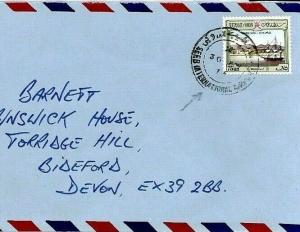 BARNETT
UNSWICK HOUSE,
TORRIDGE HILL,
BIDEFORD,
DEVON, EX39 2BB.
SEEB INTERNATIONAL